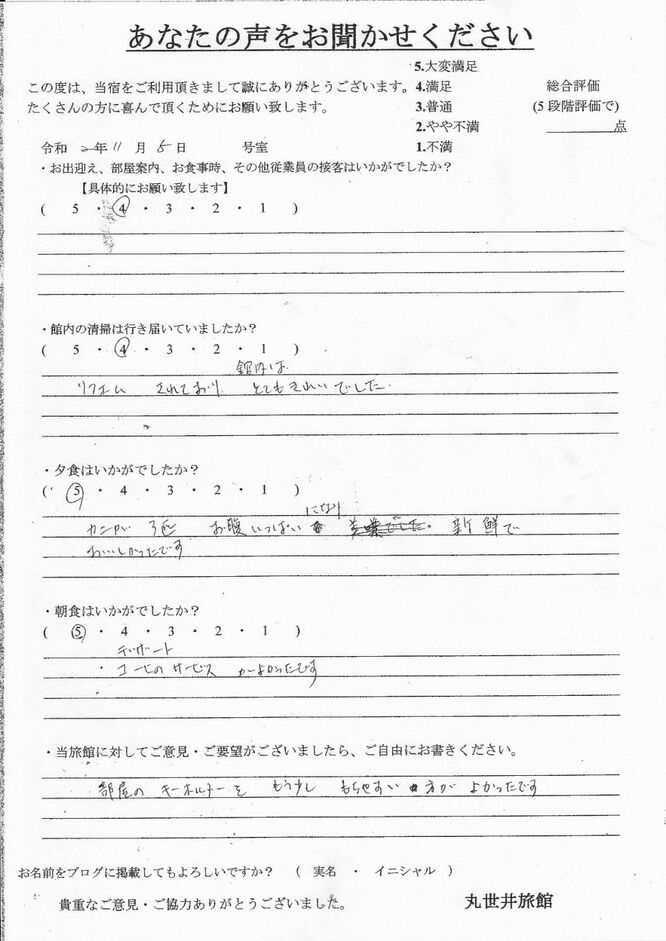 あなたの声をお聞かせください
5.大変満足
この度は、当宿をご利用頂きまして誠にありがとうございます。 4.満足 総合評価
たくさんの方に喜んで頂くためにお願い致します。 3.普通 (5段階評価で)
2.やや不満 点
令和 2年 11月 5日 号室 1.不満
・お出迎え、部屋案内、お食事時、その他従業員の接客はいかがでしたか？
【具体的にお願い致します】
( 5 ・ 4 ・ 3 ・ 2 ・ 1 )
・館内の清掃は行き届いていましたか？
( 5 ・ 4 ・ 3 ・ 2 ・ 1 )
館内は
リフォーム されており とてもきれいでした
・夕食はいかがでしたか？
( 5 ・ 4 ・ 3 ・ 2 ・ 1 )
になり
カニが 3匹 お腹いっぱい 新鮮で
おいしかったです
・朝食はいかがでしたか？
( 5 ・ 4 ・ 3 ・ 2 ・ 1 )
デザート
・コーヒのサービス がよかったです
・当旅館に対してご意見・ご要望がございましたら、ご自由にお書きください。
部屋の キーホルダーを もう少し もちやすい 方が よかったです
お名前をブログに掲載してもよろしいですか？ ( 実名 ・ イニシャル )
貴重なご意見・ご協力ありがとうございました。 丸世井旅館